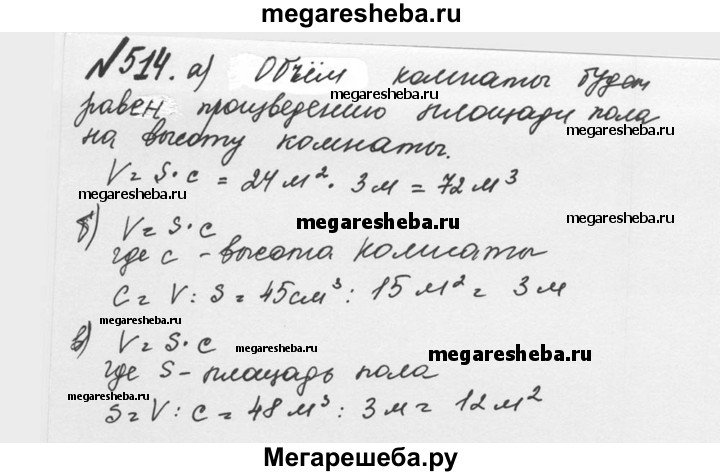 megaresheba.ru
№514. а) Объём комнаты будет
равен произведению площади пола
megaresheba.ru
на высоту комнаты.
V = S · c = 24 м². 3 м = 72 м³
megaresheba.ru
megaresheba.ru
б) V = S · c
megaresheba.ru
где c - высота комнаты
C = V : S = 45 см³ : 15 м² = 3 м
megaresheba.ru
в) V = S · c
megaresheba.ru
megaresheba.ru
где S - площадь пола
megaresheba.ru
S = V : C = 48 м³ : 3 м = 12 м²
Мегарешеба.ру